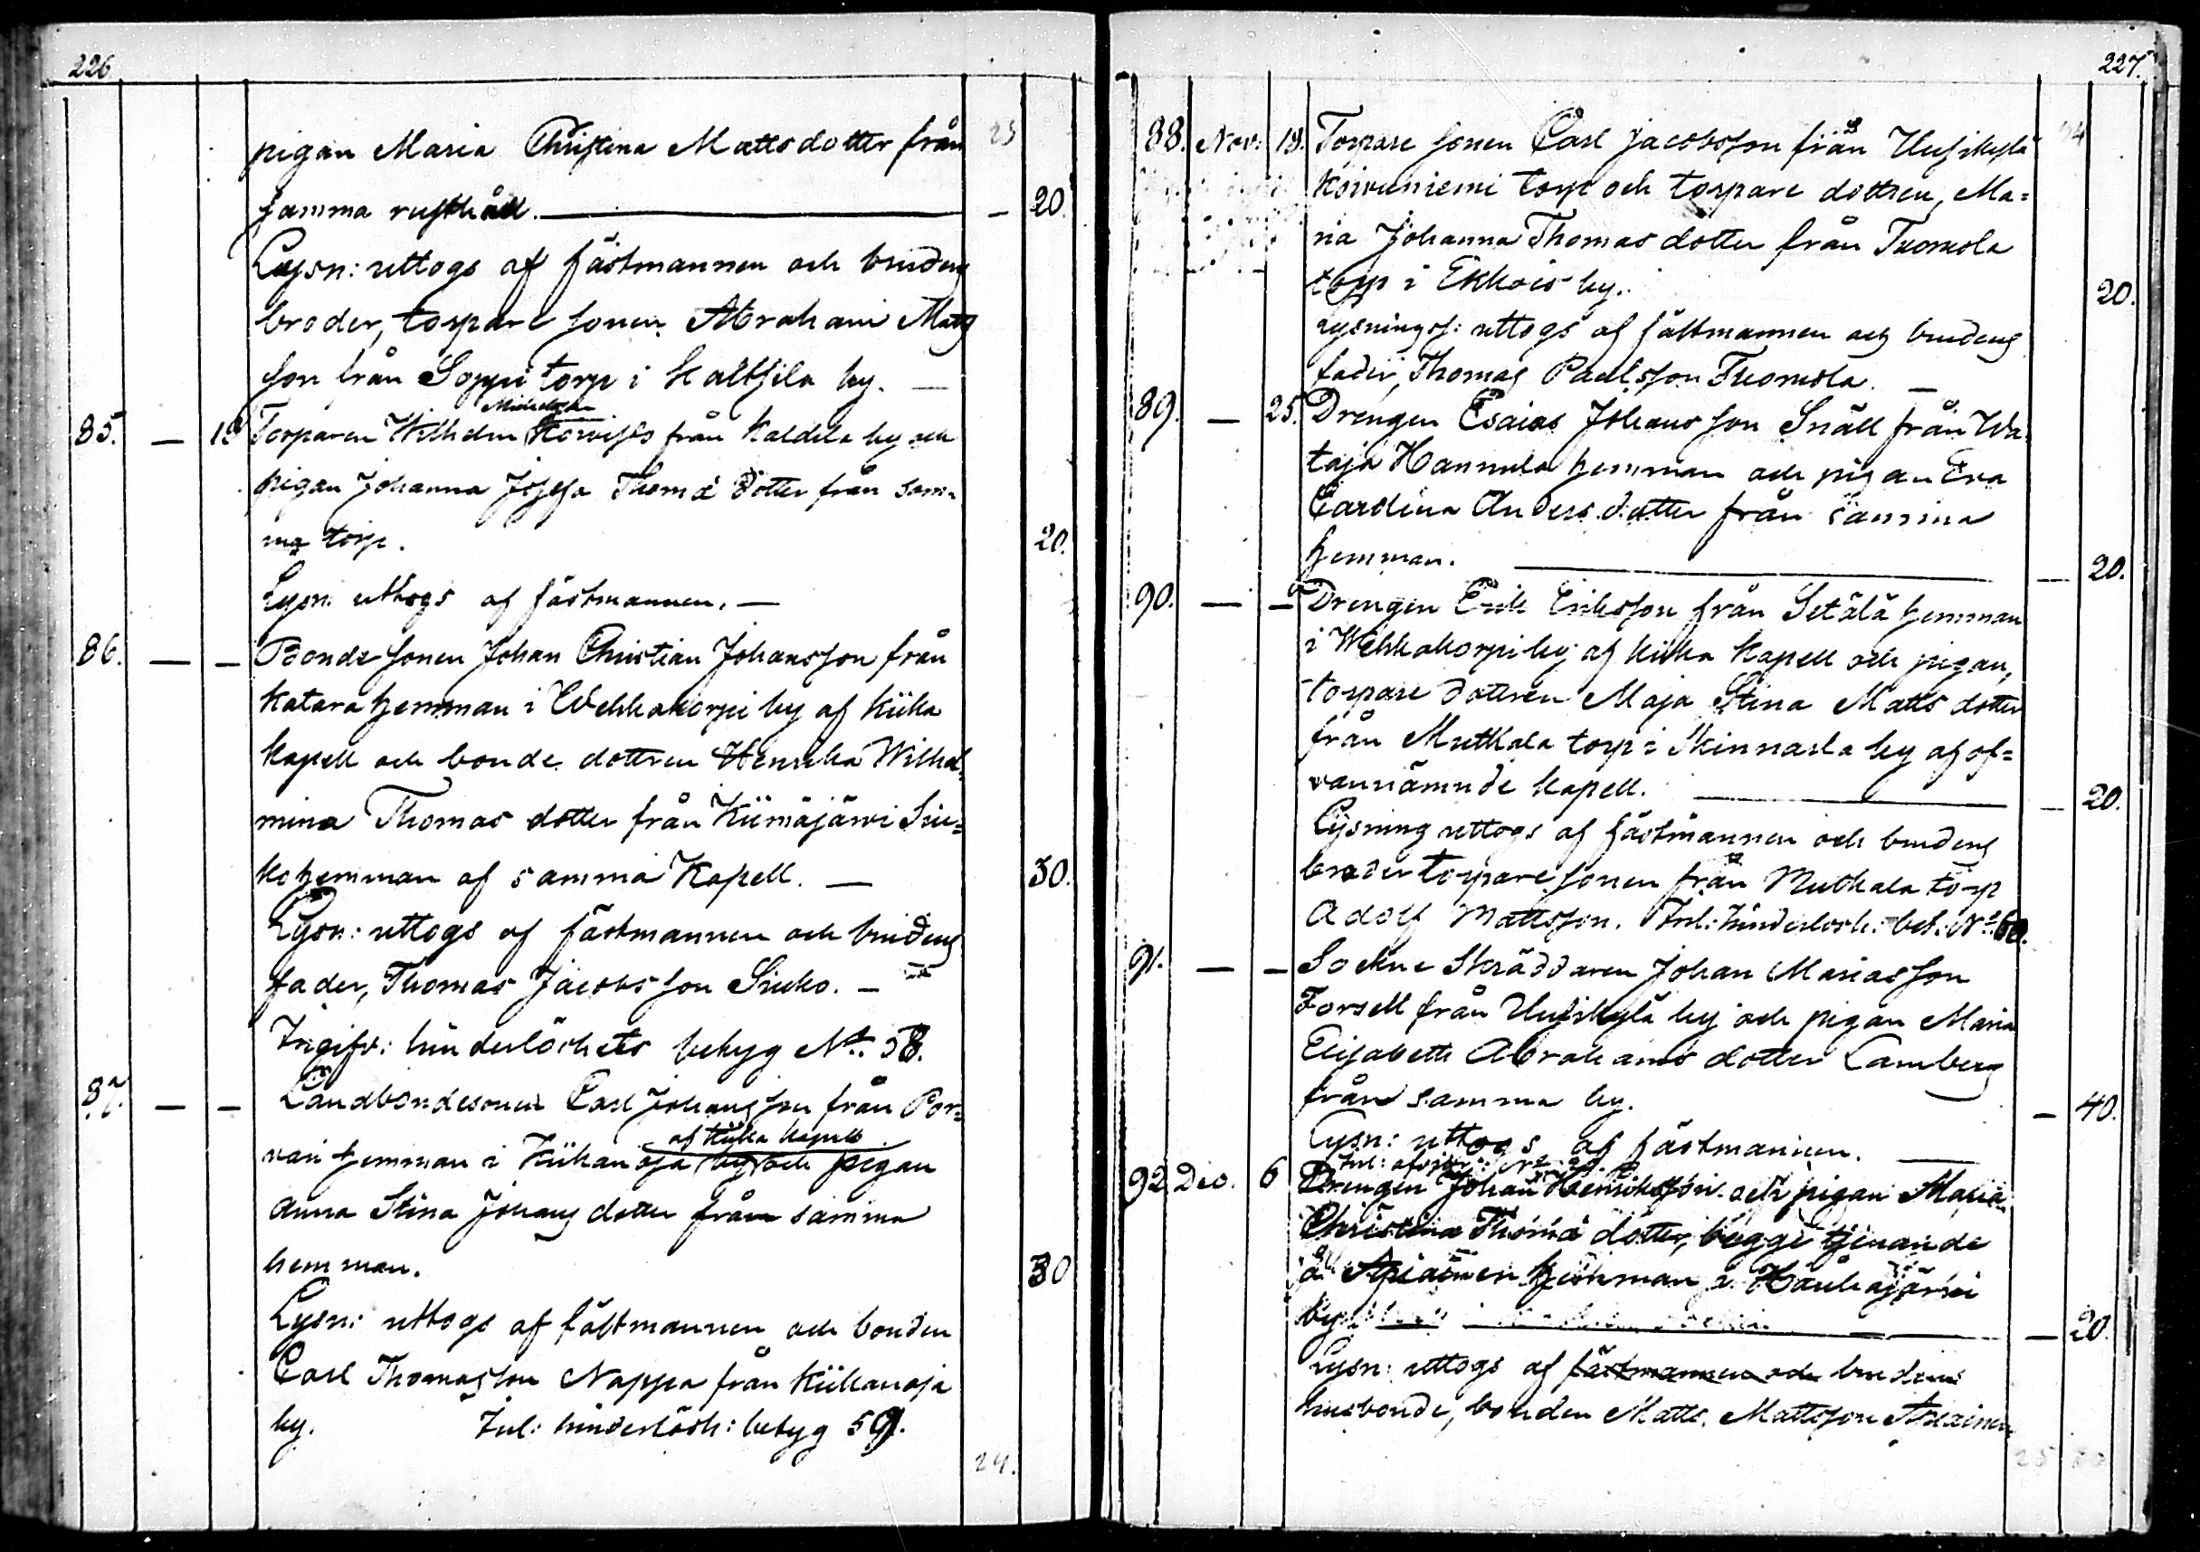 226
pigan Maria Christina Mattsdotter från 23
samma rusthåll. — — 20.
Lysn: uttogs af fästmannen och brudens
broder, torpare sonen Abraham Matts
son från Soppi torp i Kaltsila by. —
Michelsson
85. — 18 Torparen Wilhelm från Kaldila by och
pigan Johanna Josefa Thomä dotter från sam-
ma torp. 20.
Lysn: uttogs af fästmannen. —
86. — — Bonde sonen Johan Christian Johansson från
Katara hemman i Wehkakorpi by af Kiika
Kapell och bonde dottren Henrika Wilhel-
mina Thomas dotter från Kiimajärwi Siu-
ko hemman af samma Kapell. — 30.
Lysn: uttogs af fästmannen och brudens
fader, Thomas Jacobsson Siuko. —
Ingifv: hinderlöshets betyg No. 58.
87. — — Landbondesonen Carl Johansson från Por-
af Kiika kapell
van hemman i Kiikanoja by och pigan
Anna Stina Johans dotter från samma
hemman. 30
Lysn: uttogs af fästmannen och bonden
Carl Thomasson Nappa från Kiikanoja
by. Inl: hinderlösh: betyg 59.
24.
227.
88. Nov: 18. Torpare sonen Carl Jacobsson från Uusikylä 24
Koivuniemi torp och torpare dottren, Ma-
ria Johanna Thomas dotter från Tuomola
torp i Ekkois by. 20.
Lysningsf: uttogs af fästmannen och brudens
fader, Thomas Paulsson Tuomola. —
89. — 25. Drengen Esaias Johansson Snäll från Wa
taja Hannula hemman och pigan Eva
Carolina Anders dotter från samma
hemman. — — 20.
90. — — Drengen Erik Eriksson från Setälä hemman
i Wehkakorpi by af Kiika Kapell och pigan,
torpare dottren Maja Stina Matts dotter
från Mutkala torp i Skinnarla by af of-
vannämnde kapell. — — 20.
Lysning uttogs af fästmannen och brudens
broder torpare sonen från Mutkala torp
Adolf Mattsson. Inl: hinderlösh: bet: No: 60.
91. — — Sockne Skräddaren Johan Mariasson
Forsell från Uusikylä by och pigan Maria
Elisabeth Abrahams dotter Lamberg
från samma by. — 40.
Lysn: uttogs af fästmannen. —
92. Dec. 6 Drengen Johan Henriksson och pigan Maria
Christina Thomä dotter, bägge tjenande
å Apiainen hemman i Kauhajärwi
by — — 20.
Lysn: uttogs af fästmannen och brudens
husbonde, bonden Matts Mattsson Apiainen
25